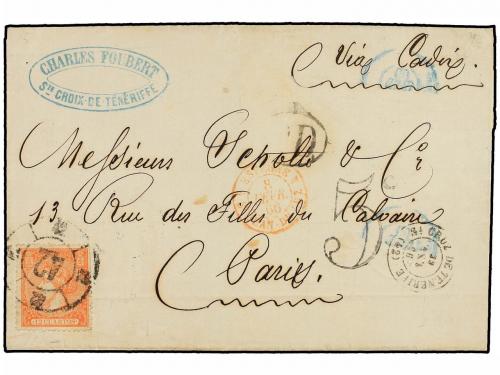 CHARLES FOUBERT
STE CROIX-DE TÉNÉRIFFE
Via Cadix.
Messieurs Scholle & Cie
13, Rue des Filles du Calvaire
Paris.
5
STA CRUZ DE TENERIFE
42
12 CUARTOS